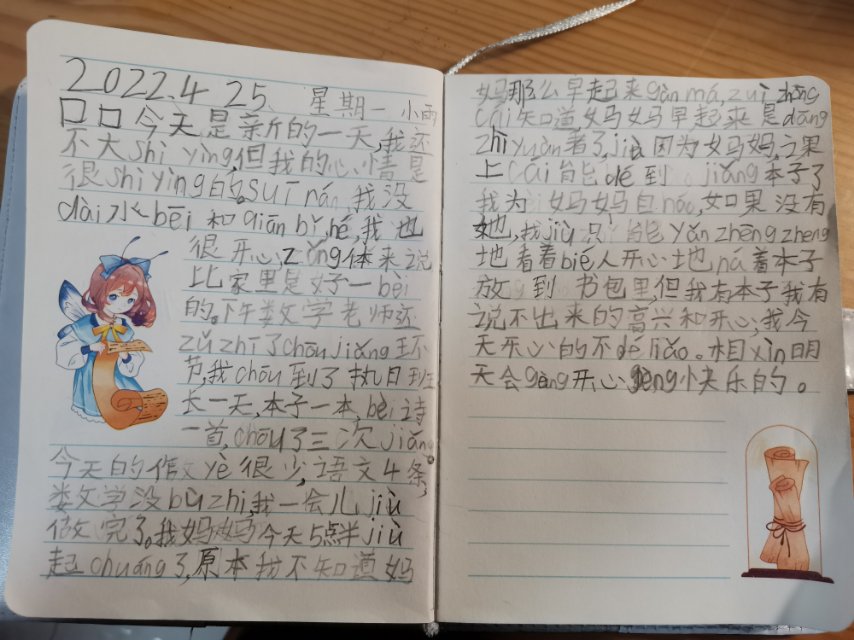 2022.4 25. 星期一 小雨
口口今天是新的一天,我还
不大shi yìng,但我的心情是
很shi yìng的。suī rán,我没
dài水bēi和qiān bǐ hé,我也
很开心,zǒng体来说
比家里是好一bèi
的。下午娄文学老师还
zǔ zhī了chōu jiǎng环
节,我chōu到了执日班
长一天,本子一本,bèi诗
一首,chōu了三次jiǎng。
今天的作yè很少,语文4条,
娄文学没bù zhi,我一会儿jiù
做完了。我妈妈今天5点半jiù
起chuáng了,原本我不知道妈
妈那么早起来gàn má,zuì zhōng
cái知道妈妈早起来是dāng
zhì yuàn者了,jiù因为妈妈,之果
上cái能dé到jiǎng本子了
我为妈妈自háo,如果没有
她,我jiù只能yǎn zhēng zheng
地看着bié人开心地ná着本子
放到书包里,但我有本子我有
说不出来的高兴和开心,我今
天开心的不dé liǎo。相xìn明
天会gèng开心gèng快乐的。